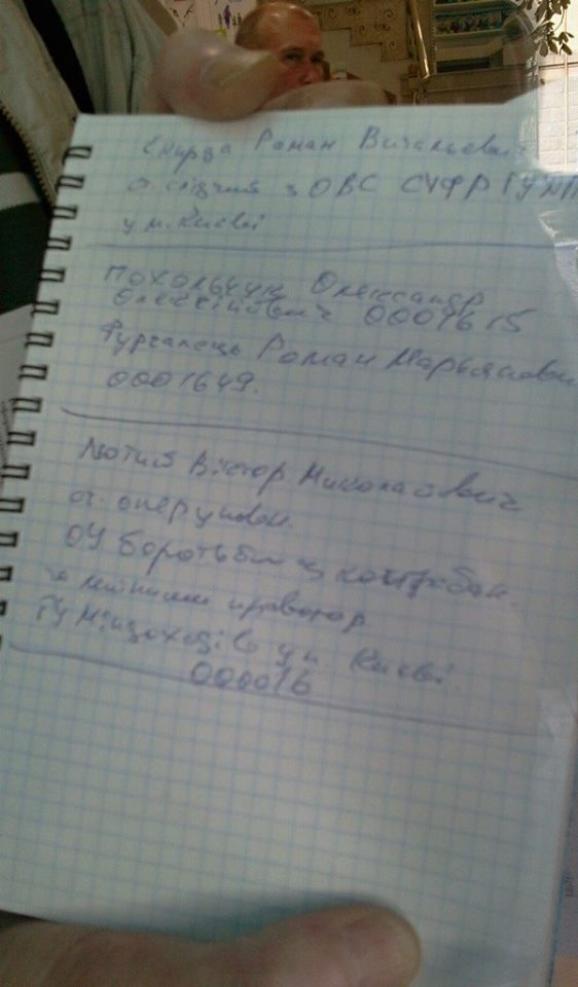 Роман Витальевич
ст. слідчий з ОВС СУФР ГУМ
у м. Києві
Похольчук Олександр
Олексійович 0001615
Фургалець Роман Марьянович
0001649.
Лютий Віктор Миколайович
ст. оперуповн.
ОУ боротьби з контрабан.
з митними правопор
ГУ Міндоходів у м. Києві
000016